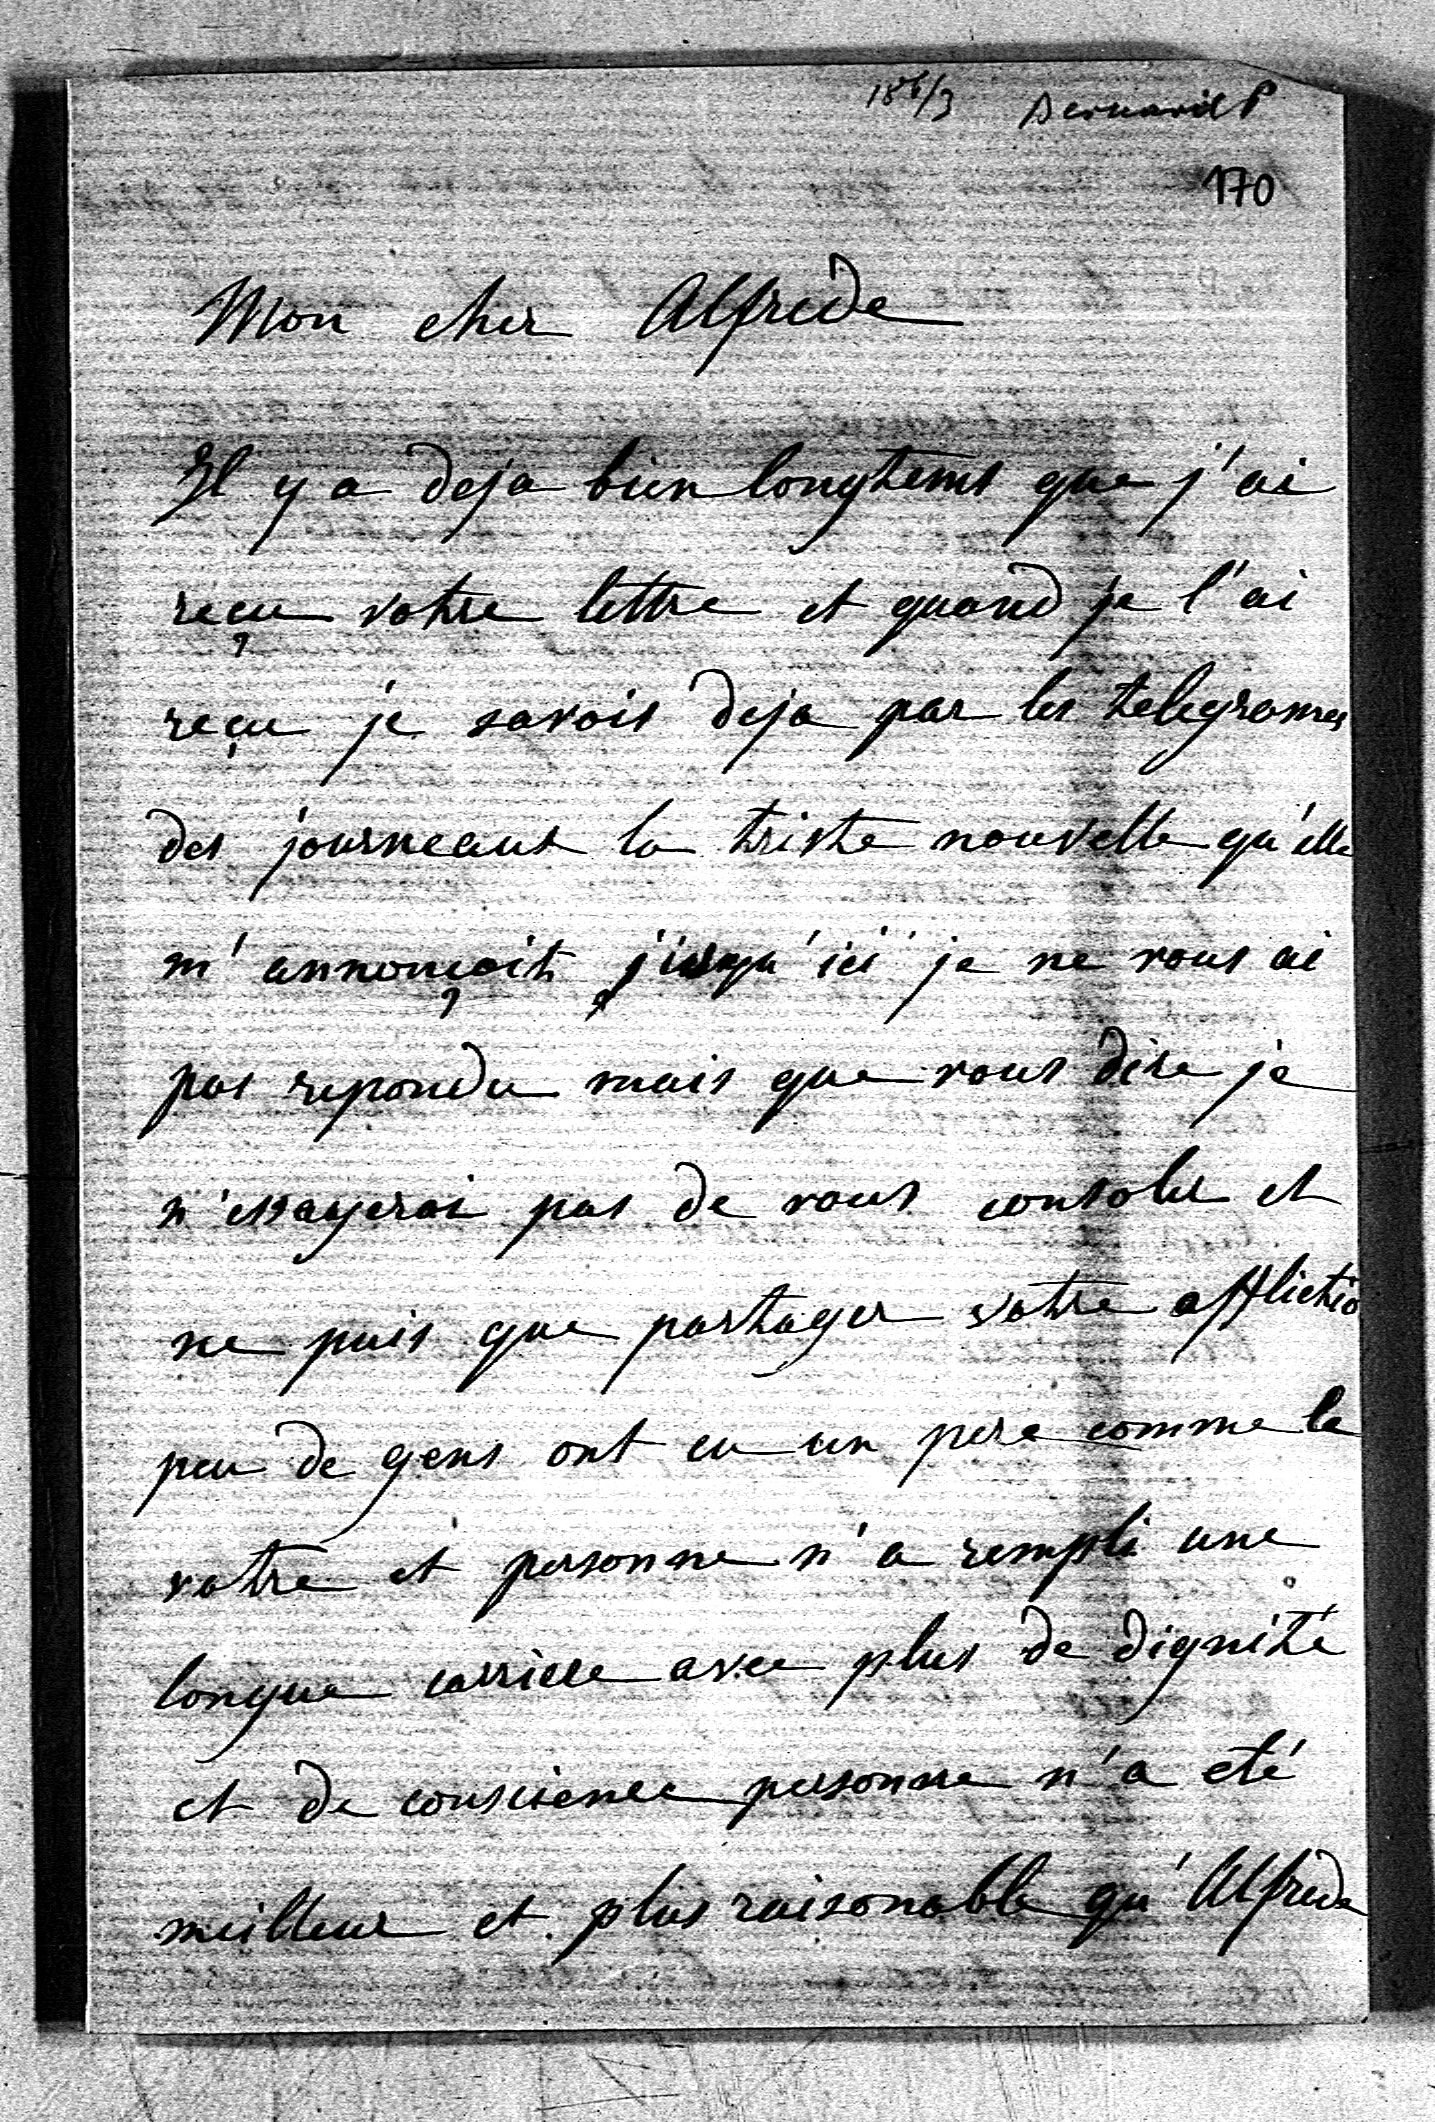 186/3 Bernard P
170
Mon cher Alfrede
Il y a deja bien longtems que j'ai
reçu votre lettre et quand je l'ai
reçu je savois deja par les telegrames
des journeaux la triste nouvelle qu'elle
m'annonçoit jusqu'ici je ne vous ai
pas repondu mais que vous dire je
n'essayerai pas de vous consoler et
ne puis que partager votre afflictio
peu de gens ont eu un pere comme le
votre et personne n'a rempli une
longue carriere avec plus de dignité
et de conscience personne n'a eté
meilleur et plus raisonable qu'Alfrede